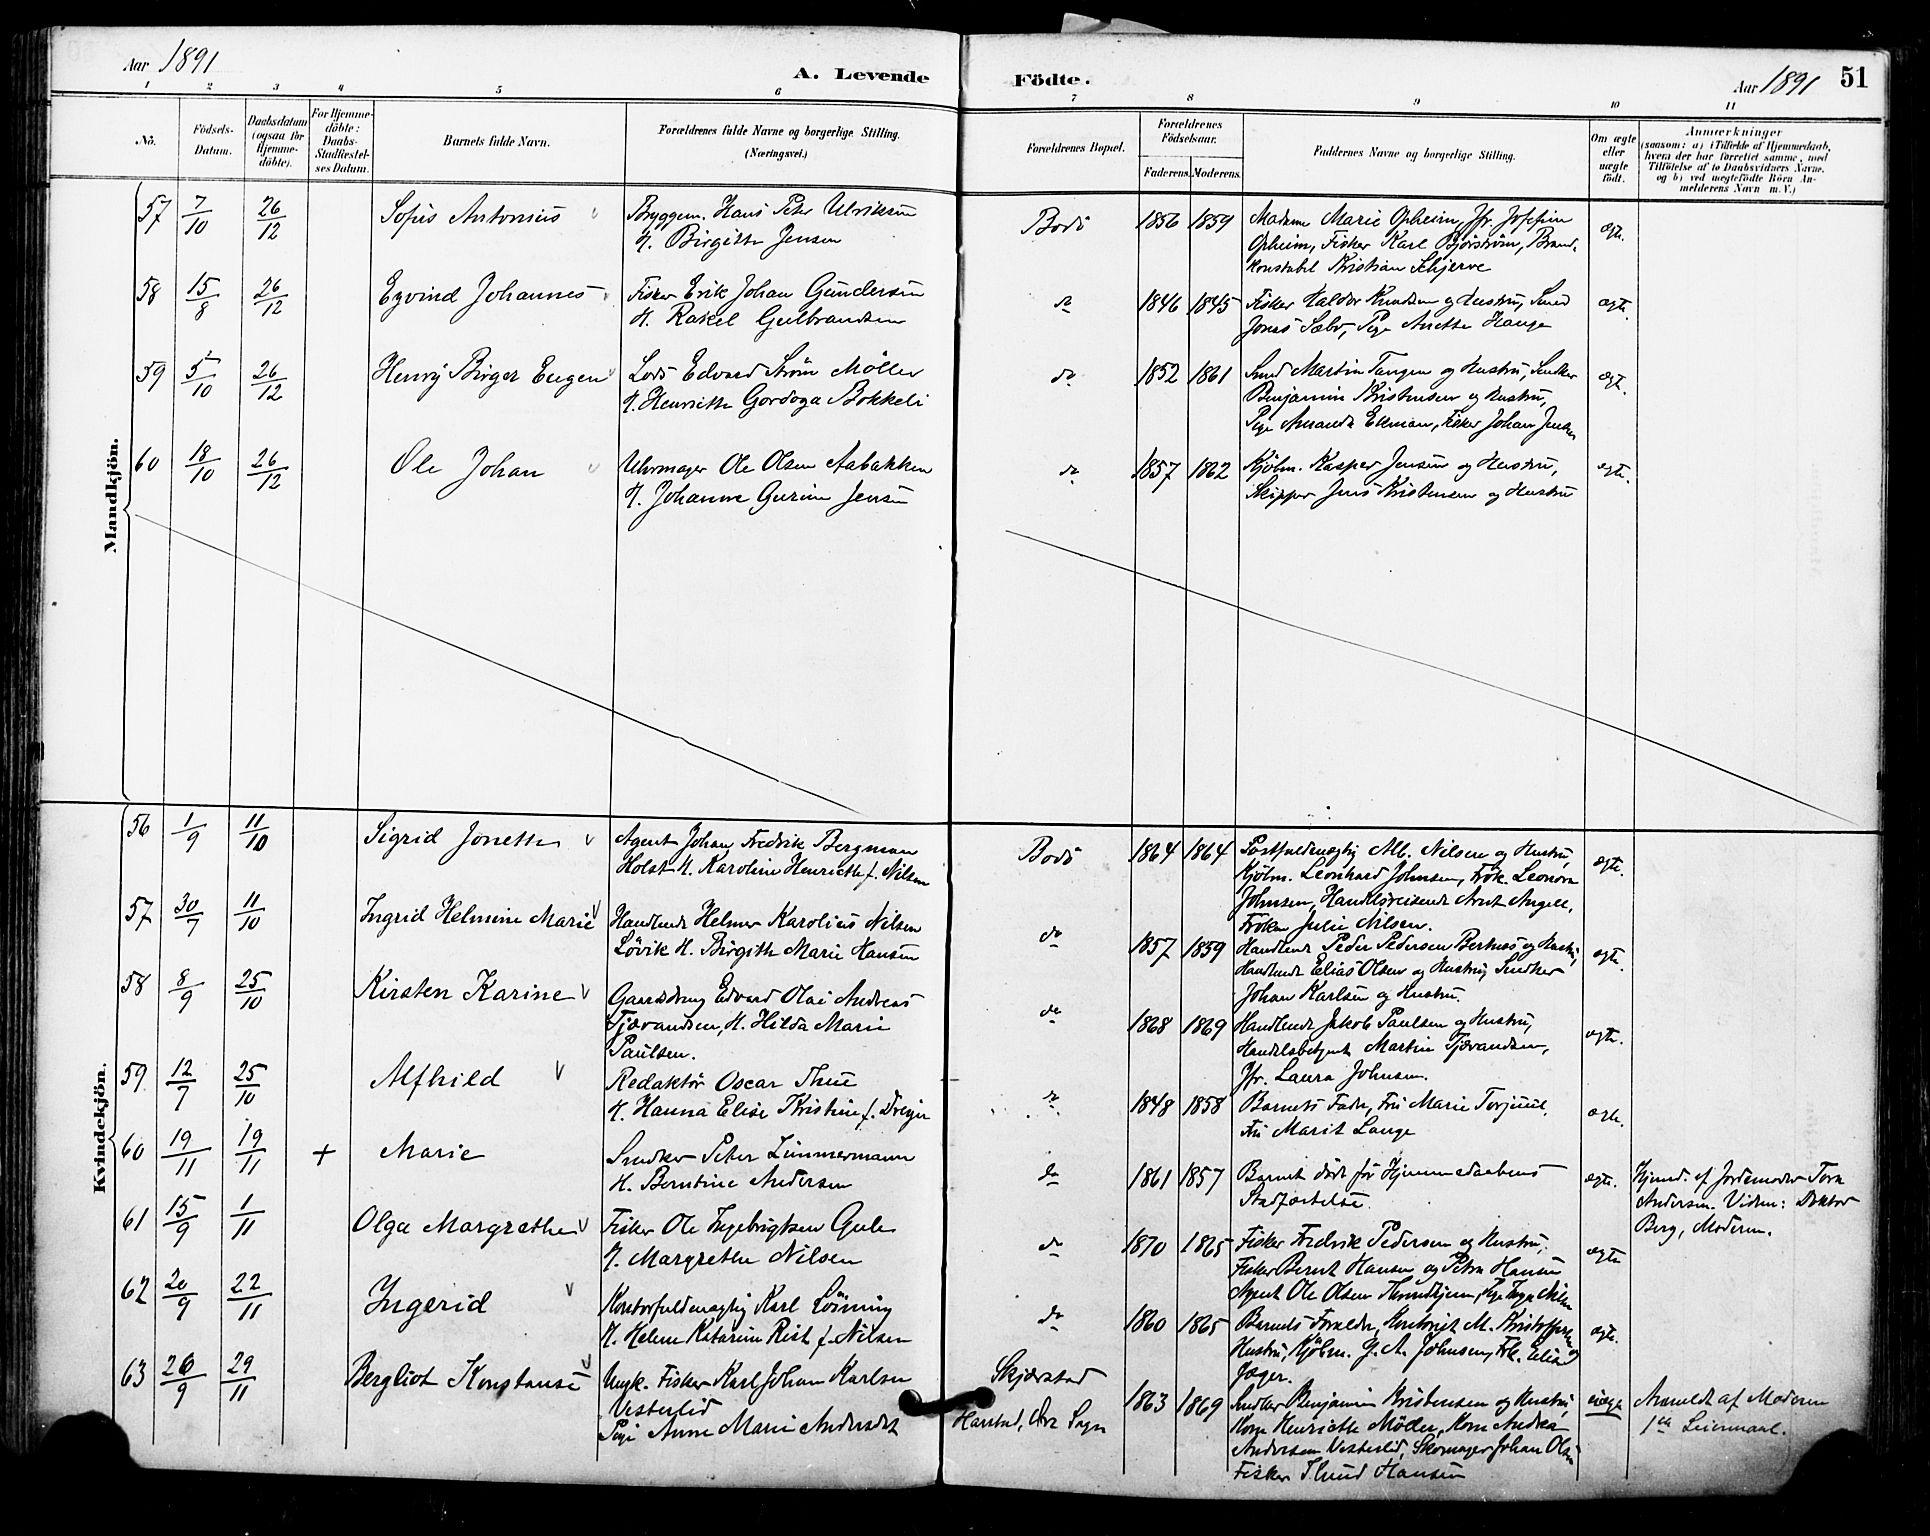 Aar 1891
A. Levende
Födte.
Aar 1891
51
1 2 3 4 5 6 7 8 9 10 11
No.
Födsels-
Datum.
Daabsdatum
(ogsaa for
Hjemme-
döbte).
For Hjemme-
döbte:
Daabs-
Stadfæstel-
ses Datum.
Barnets fulde Navn.
Forældrenes fulde Navne og borgerlige Stilling.
(Næringsvei.)
Forældrenes Bopæl.
Forældrenes
Födselsaar.
Faderens. Moderens.
Faddernes Navne og borgerlige Stilling.
Om ægte
eller
uægte
født.
Anmærkninger
(saasom: a) i Tilfælde af Hjemmedaab,
hvem der har forrettet samme, med
Tilföielse af to Daabsvidners Navne,
og b) ved uægtefödte Börn An-
melderens Navn m. V.)
Mandkjön.
57 7/10 26/12 Sofus Antonius
Bryggem. Hans Peter Ulriksen
H. Birgitte Jensen
Bodö 1856 1859
Madame Marie Opheim, Jfr. Josefine
Opheim, Fisker Karl Björström, Brand-
konstabel Kristian Skjerve
ægte.
58 15/8 26/12 Eyvind Johannes
Fisker Erik Johan Gundersen
H. Rakel Gulbrandsen
do 1846 1845
Fisker Haldor Knudsen og Hustru, Smed
Jonas Sæbø, Pige Anette Hauge
ægte.
59 5/10 26/12 Henry Birger Eugen
Lods Edvard Strøm Møller
H. Henriette Gordoga Bokkeli
do 1852 1861
Smed Martin Tangen og Hustru, Snedker
Benjamin Kristensen og Hustru,
Pige Amanda Ekman, Fisker Johan Jensen
ægte.
60 18/10 26/12 Ole Johan
Uhrmager Ole Olsen Aabakken
H. Johanne Gurine Jensen
do 1857 1862
Kjøbm. Kasper Jensen og Hustru,
Skipper Jens Kristensen og Hustru
ægte.
Kvindekjön.
56 1/9 11/10 Sigrid Jonette
Agent Johan Fredrik Bergman
Holst H. Karoline Henriette f. Nilsen
Bodö 1864 1864
Postfuldmægtig Alb. Nilsen og Hustru,
Kjøbm. Leonhard Johnsen, Frøk. Leonora
Johnsen, Handelsreisende Arnt Angell,
Frøken Julie Nilsen.
ægte.
57 30/7 11/10 Ingrid Helmine Marie
Handlende Helmer Karolius Nilsen
Løvik H. Birgitte Marie Hansen
do 1857 1859
Handlende Peder Pedersen Bertnes og Hustru,
Handlende Elias Olsen og Hustru, Snedker
Johan Karlsen og Hustru.
ægte.
58 8/9 25/10 Kirsten Karine
Gaardsdreng Edvard Olai Andreas
Tjærandsen, H. Hilda Marie
Paulsen.
do 1868 1869
Handlende Jakob Paulsen og Hustru,
Handelsbetjent Martin Tjærandsen,
Jfr. Laura Johnsen.
ægte.
59. 12/7 25/10 Alfhild
Redaktør Oscar Thue
H. Hanna Elise Kristine f. Dreyer
do 1848 1858
Barnets Fader, Fru Marie Torjuul,
Fru Marit Lange
ægte.
60 19/11 19/11 + Marie
Snedker Peter Zimmermann
H. Berntine Andersen
do 1861 1857
Barnet døde før Hjemmedaabens
Stadfæstelse
ægte.
Hjemd. af Jordemoder Tora
Andersen. Vidner: Doktor
Berg, Moderen.
61 15/9 1/11 Olga Margrethe
Fisker Ole Ingebrigtsen Gule
H. Margrethe Nilsen
do 1870 1865
Fisker Fredrik Pedersen og Hustru,
Fisker Bernt Hansen og Petra Hansen
Agent Ole Olsen Trondhjem,
ægte
62 20/9 22/11 Ingerid
Kontorfuldmægtig Karl Löining
H. Helene Katarina Rist f. Nilsen
do 1860 1865
Barnets Forældre, M. Kristoffersen og
Hustru, Kjøbm. G. A. Johnsen, Frk. Elise
Jæger.
ægte.
63 26/9 29/11 Bergliot Konstanse
Ungk. Fisker Karl Johan Karlsen
Vesterlid
Pige Anne Marie Andersdt
Skjærstad
Harstad, Sogn
1863 1869
Snedker Benjamin Kristensen og Hustru,
Kone Henriette Møller, Kone Andrea
Andersen Vesterlid, Skomager Johan Olsen
Fisker Hansen
uægte
Anmeldt af Moderen
1ste Leiermaal.